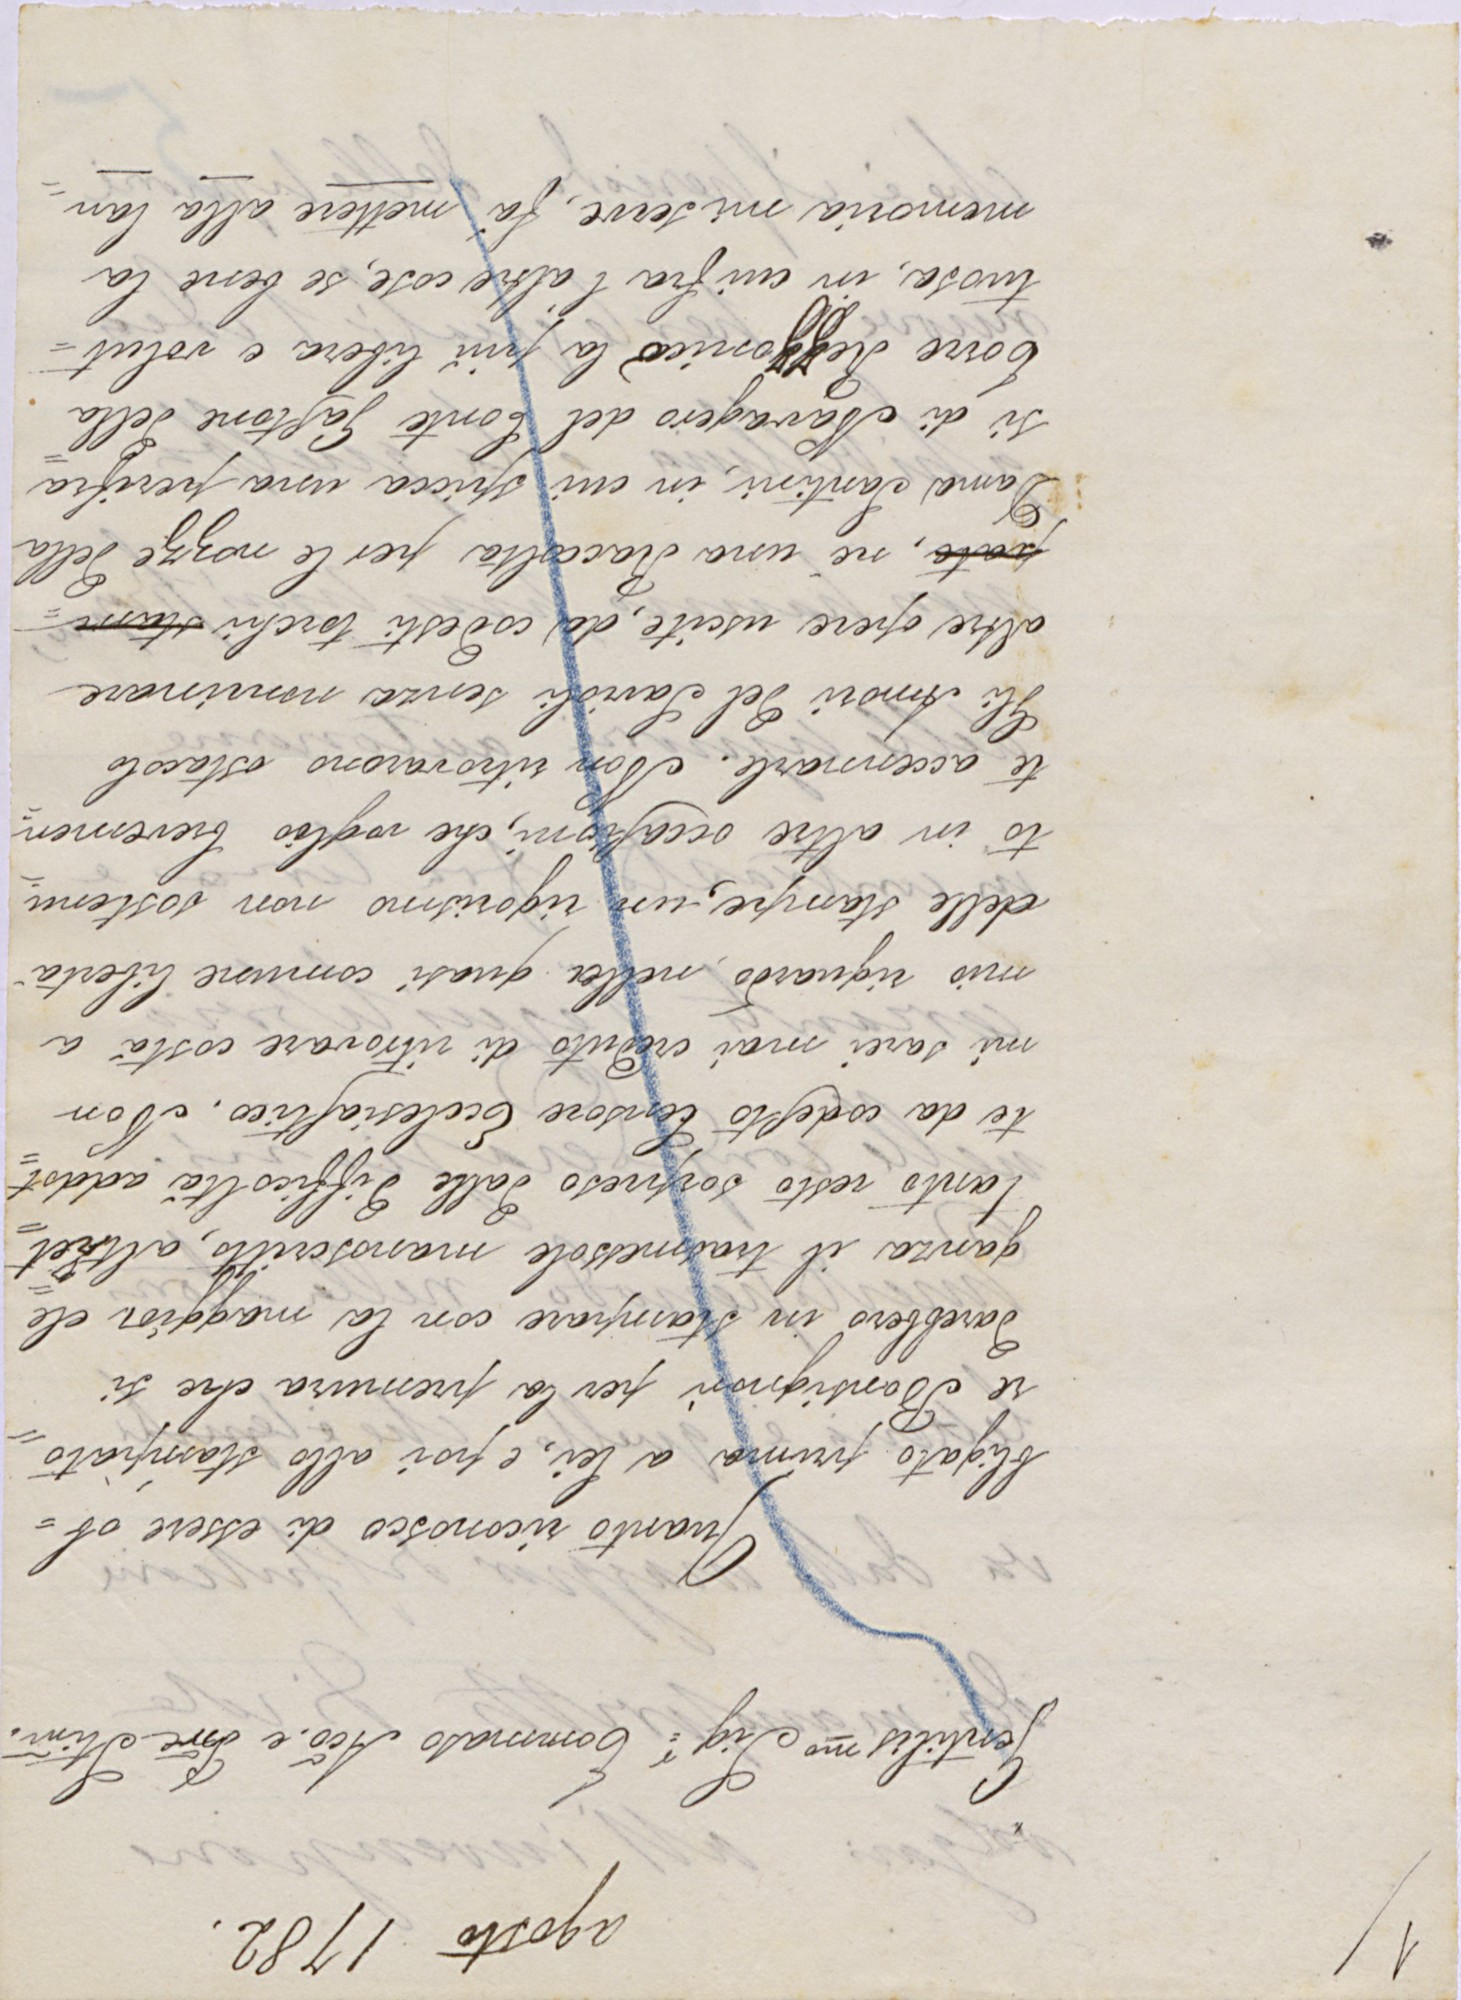 1/
agosto 1782.
Gentiliss.mo Sig.r Tommaso Aco. e Pne Stim.
Quanto riconosco di essere ob=
bligato prima a lei, e poi allo stampato=
re Bonsignori per la premura che si
darebbero in stampare con la maggior ele=
ganza il trasmessole manoscritto, altret=
tanto resto sorpreso dalle difficoltà addot=
te da codesto Censore Ecclesiastico. Non
mi sarei mai creduto di ritrovare costà a
mio riguardo, nella quasi comune libertà
delle stampe, un rigorismo non sostenu=
to in altre occasioni, che voglio brevemen=
te accennarle. Non ritrovarono ostacolo
Gli Amori del Savioli senza nominare
altre opere uscite da codesti torchi stam=
pato, nè una Raccolta per le nozze della
Dama Santini, in cui spicca una perifra=
si di Navagero del Conte Gastone della
Torre Rezzonico la più libera e volut=
tuosa, in cui fra l'altre cose, se bene la
memoria mi serve, fa mettere alla lan=